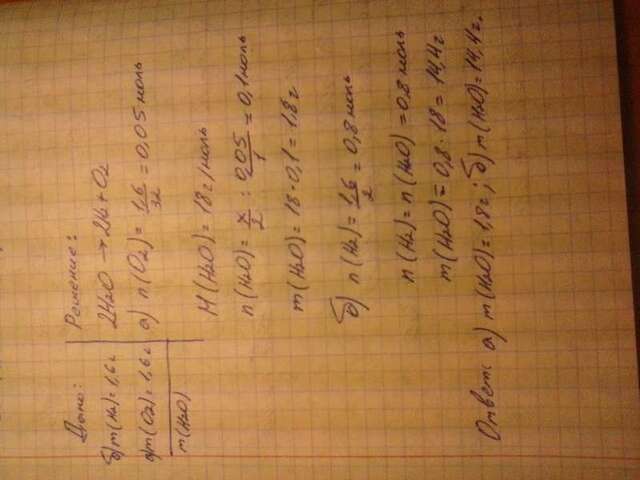 Дано:
б) m(H2) = 1,6 г
а) m(O2) = 1,6 г
m(H2O)
Решение:
2H2O → 2H2 + O2
а) n(O2) = 1,6/32 = 0,05 моль
M(H2O) = 18 г/моль
n(H2O) = x/2 : 0,05/1 = 0,1 моль
m(H2O) = 18 · 0,1 = 1,8 г
б) n(H2) = 1,6/2 = 0,8 моль
n(H2) = n(H2O) = 0,8 моль
m(H2O) = 0,8 · 18 = 14,4 г
Ответ: а) m(H2O) = 1,8 г; б) m(H2O) = 14,4 г.